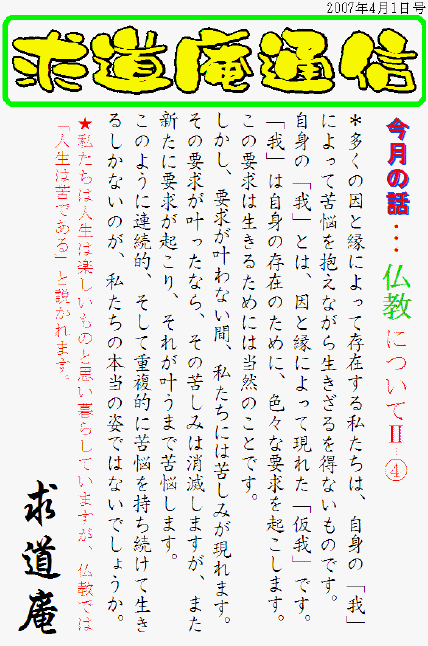 2007年4月1日号
求道庵通信
今月の話・・・仏教についてⅡ…④
＊多くの因と縁によって存在する私たちは、自身の「我」
によって苦悩を抱えながら生きざるを得ないものです。
自身の「我」とは、因と縁によって現れた「仮我」です。
「我」は自身の存在のために、色々な要求を起こします。
この要求は生きるためには当然のことです。
しかし、要求が叶わない間、私たちには苦しみが現れます。
その要求が叶ったなら、その苦しみは消滅しますが、また
新たに要求が起こり、それが叶うまで苦悩します。
このように連続的、そして重複的に苦悩を持ち続けて生き
るしかないのが、私たちの本当の姿ではないでしょうか。
★私たちは人生は楽しいものと思い暮らしていますが、仏教では
「人生は苦である」と説かれます。
求道庵